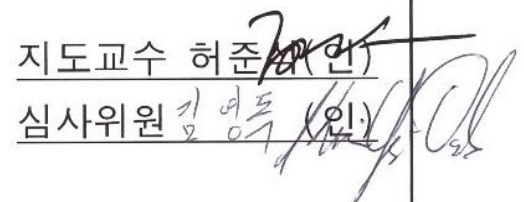 지도교수 허준 (인)
심사위원 김영득 (인)